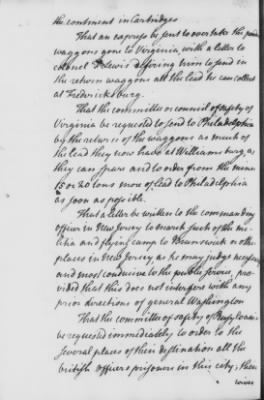 the continent in Cartridges
That an express be sent to over take the
waggons gone to Virginia, with a letter to
colonel F Lewis desiring him to send in
the return waggons all the lead he can collect
at Fredericksburg.
That the committee or council of safety of
Virginia be requested to send to Philadelphia
by the return of the waggons as much of
the lead they now have at Williamsburg, as
they can spare and to order from the mines
15 or 20 tons more of lead to Philadelphia
as soon as possible.
That a letter be written to the commanding
officer in New Jersey to march such of the mi-
litia and flying camp to Brunswick or other
places in New Jersey as he may judge necessary
and most conducive to the public service, pro-
vided that this does not interfere with any
prior directions of general Washington
That the committee of safety of Pensylvania
be requested immediately to order to the
several places of their destination all the
british officers prisoners in this city, their